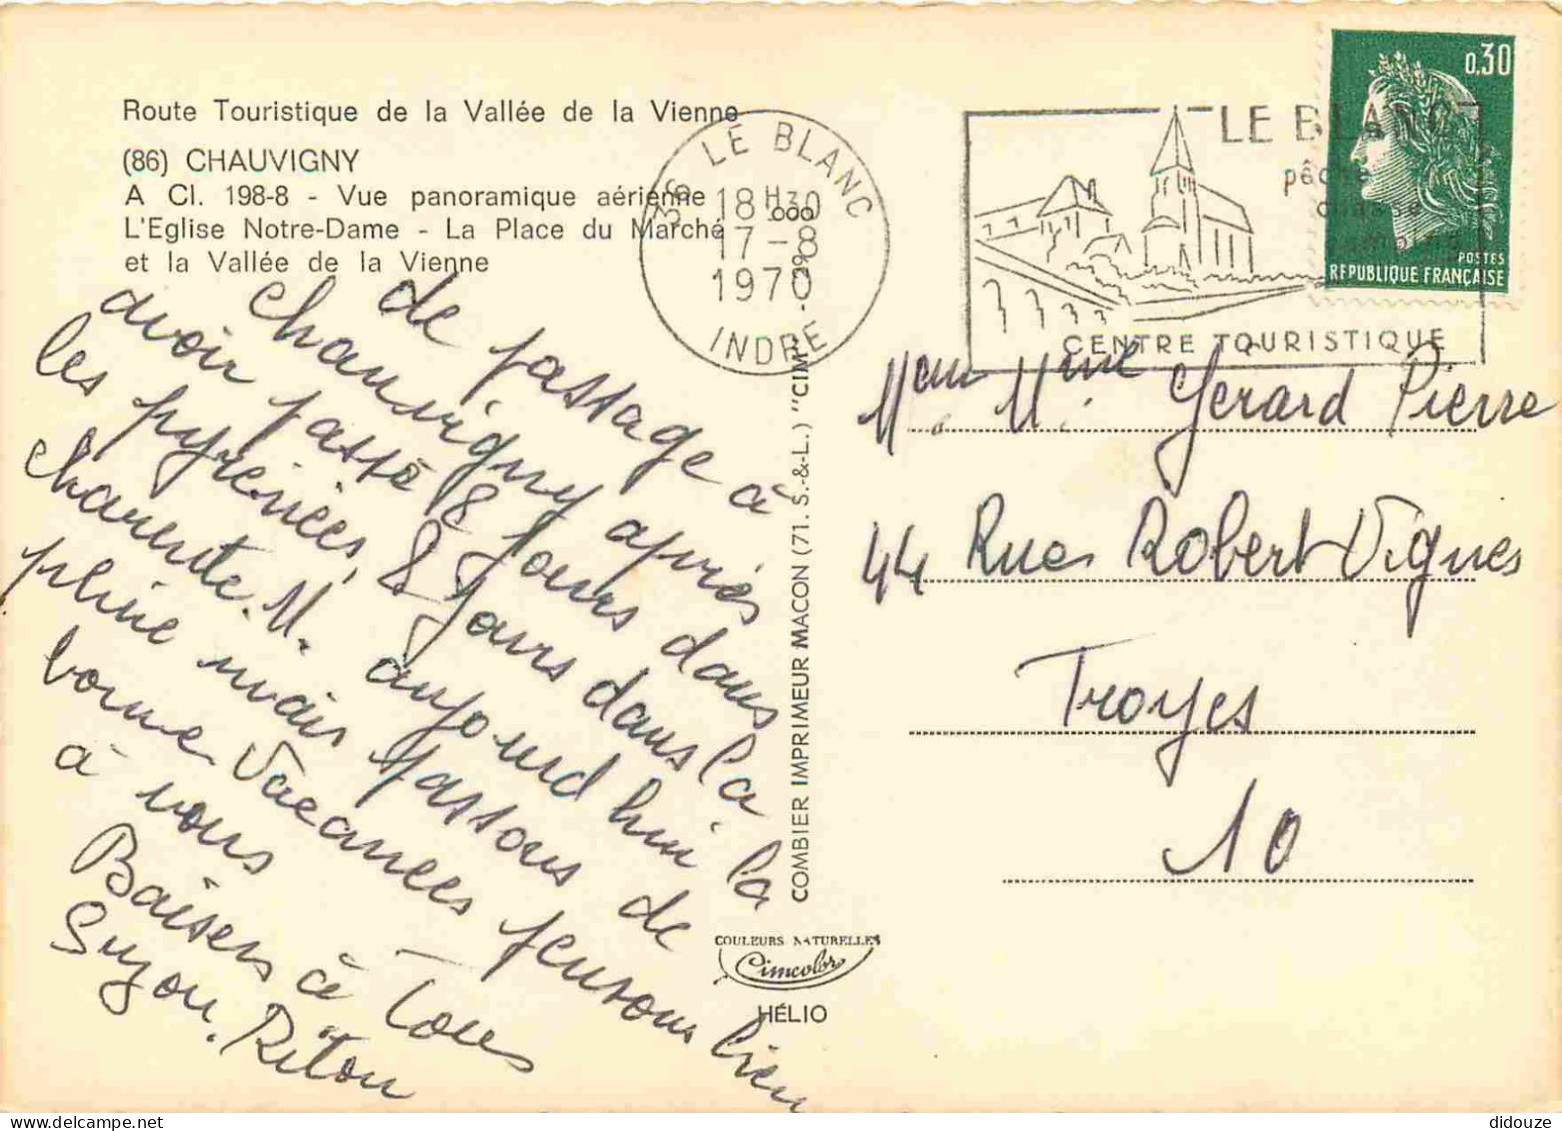 Route Touristique de la Vallée de la Vienne
(86) CHAUVIGNY
A Cl. 198-8 - Vue panoramique aérienne
L'Eglise Notre-Dame - La Place du Marché
et la Vallée de la Vienne
36 LE BLANC
18H30
17-8
1970
INDRE
LE BLANC
pêche
chasse
camping
CENTRE TOURISTIQUE
0,30
POSTES
REPUBLIQUE FRANÇAISE
de passage à
chauvigny après
avoir passé 8 jours dans
les pyrénées, 8 jours dans la
charente. M. aujourd hui la
pluie mais passons de
bonne Vacances pensons bien
à vous
Baisers à Tous
Suzon. Riton
COMBIER IMPRIMEUR MACON (71. S.-&-L.) "CIM"
COULEURS NATURELLES
Cimcolor
HÉLIO
Gérard Pierre
44 Rue Robert Vignes
Troyes
10
didouze